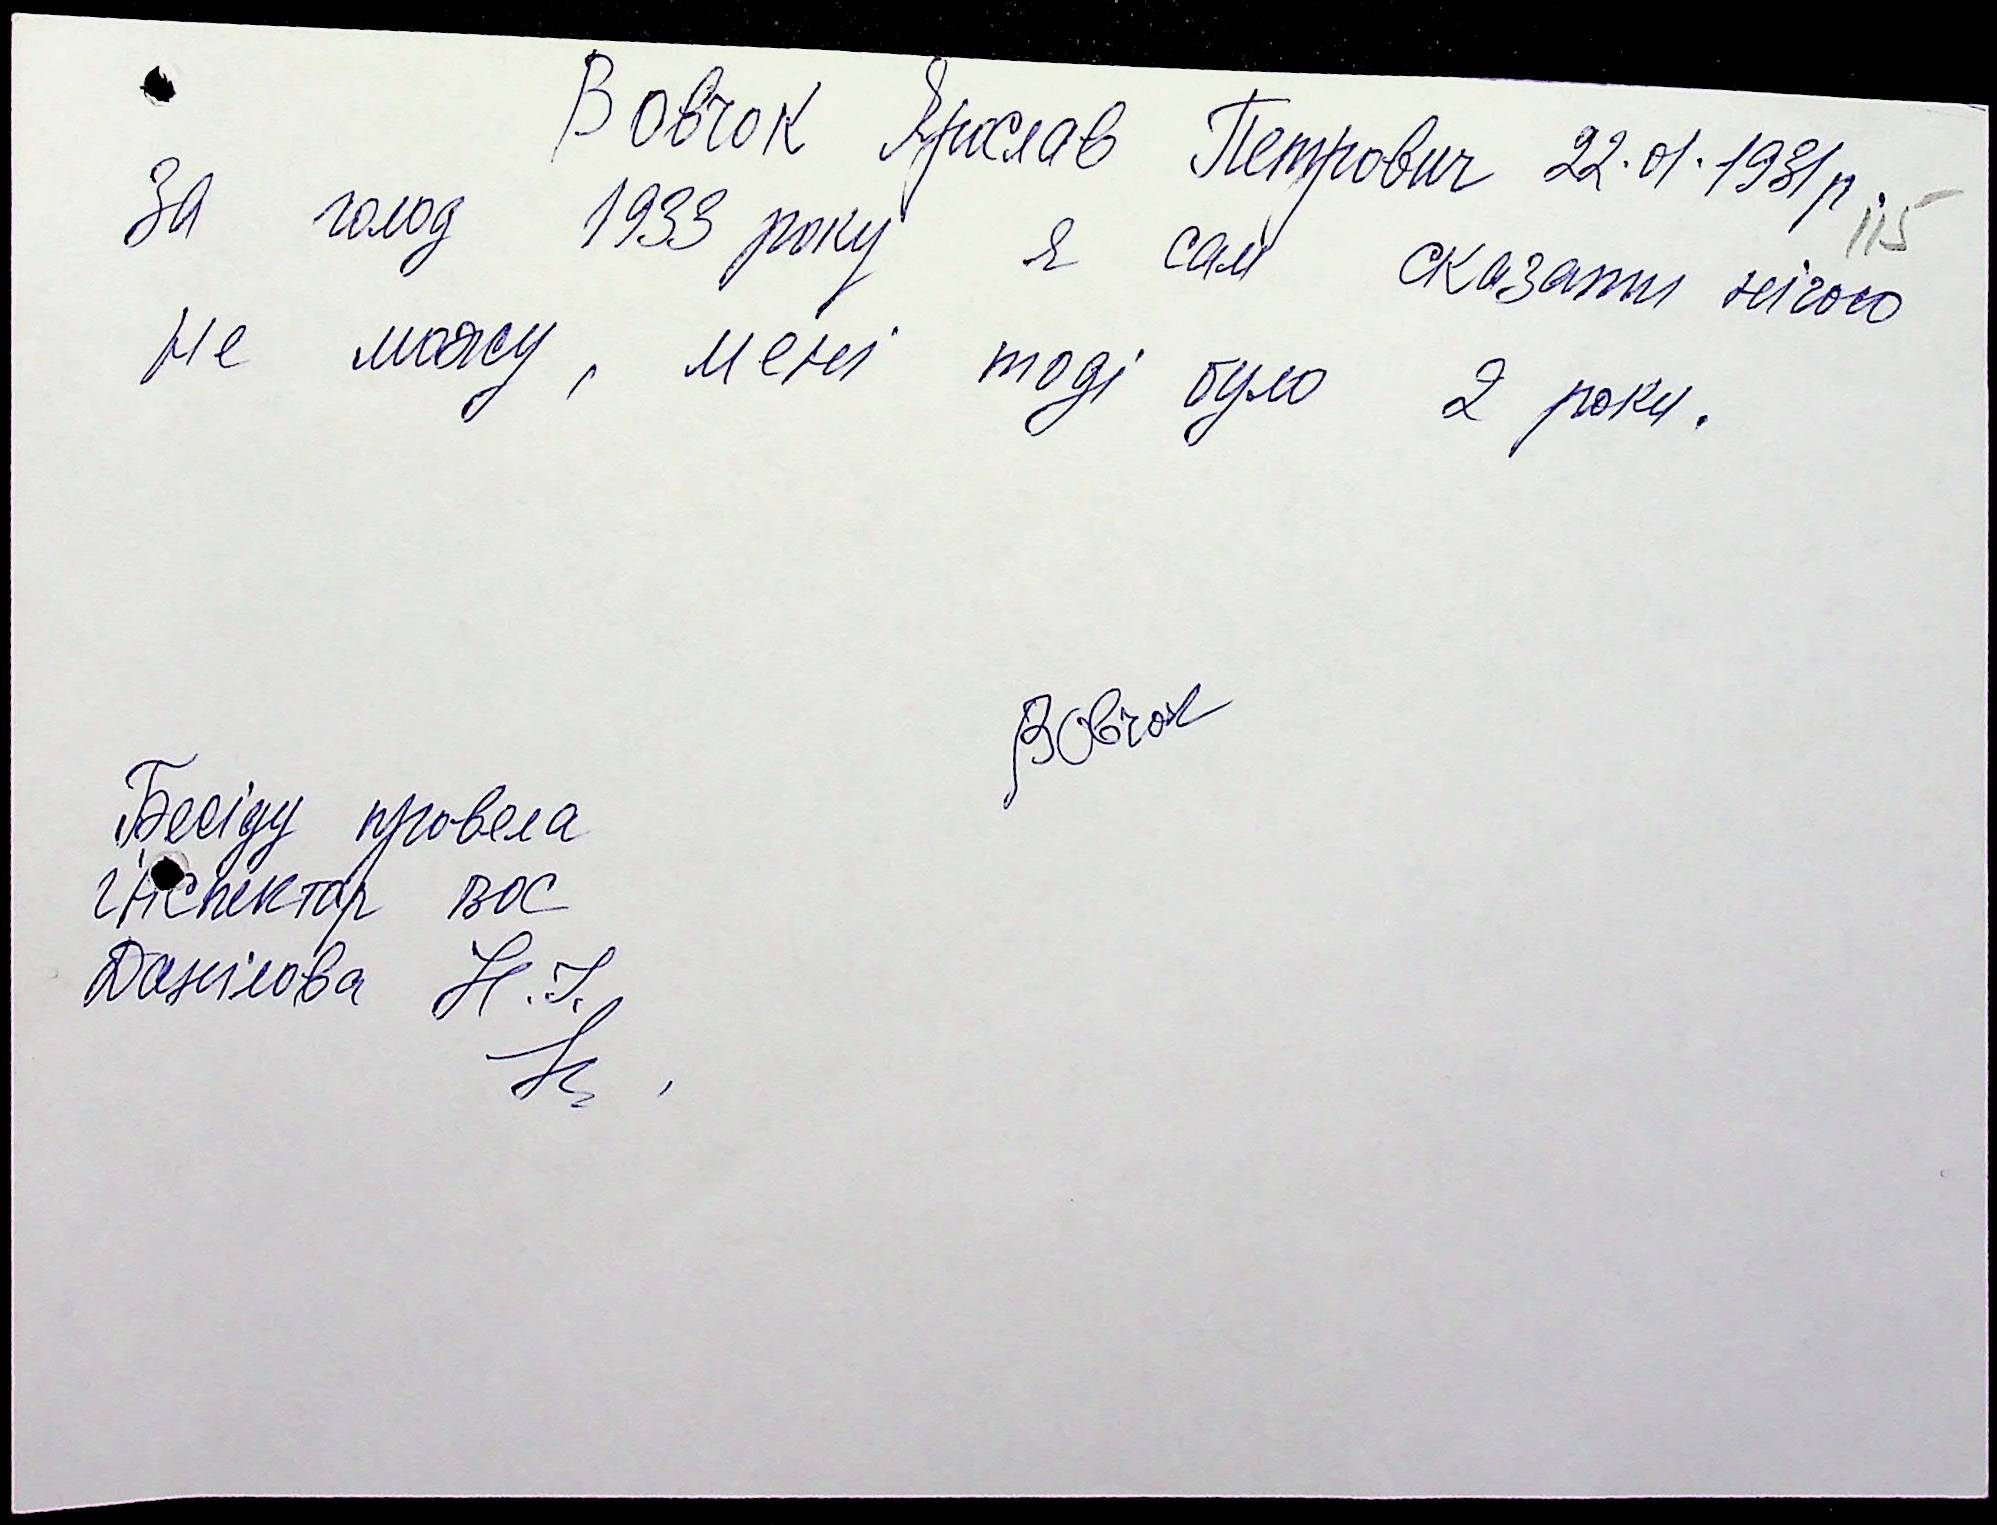 Вовчок Ярослав Петрович 22.01.1931р.
115
За голод 1933 року я сам сказати нічого
не можу, мені тоді було 2 роки.
Вовчок
Бесіду провела
інспектор ВОС
Данілова Н.І.